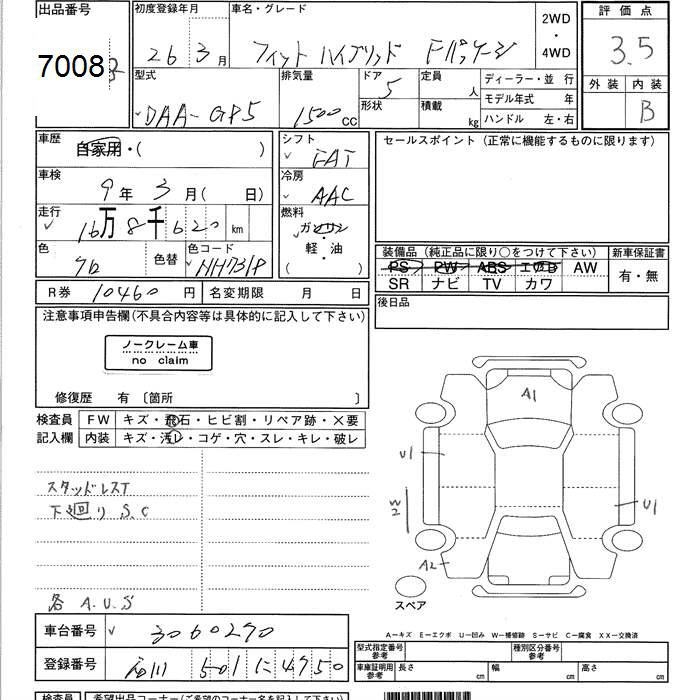 出品番号
7008
初度登録年月
26 年 3 月
車名・グレード
フィット ハイブリッド Fパッケージ
2WD
・
4WD
評価点
3.5
外装
内装
B
型式
DAA-GP5
排気量
1500 cc
ドア
5
形状
定員
人
積載
kg
ディーラー・並 行
モデル年式 年
ハンドル 左・右
車歴
自家用・( )
車検
9 年 3 月 ( 日)
走行
16万8千620 km
色
色替
色コード
シフト
FAT
冷房
AAC
燃料
ガソリン
・
軽・油
( )
セールスポイント (正常に機能するものに限ります)
装備品 (純正品に限り○をつけて下さい)
PS
PW
ABS
エアB
AW
SR
ナビ
TV
カワ
新車保証書
有・無
後日品
R券 10460 円
名変期限 月 日
注意事項申告欄(不具合内容等は具体的に記入して下さい)
ノークレーム車
no claim
修復歴 有 〔箇所 〕
検査員
記入欄
FW キズ・飛石・ヒビ割・リペア跡・X要
内装 キズ・汚レ・コゲ・穴・スレ・キレ・破レ
スタッドレスT
下廻り S.C
各 A.U.S
A1
U1
W2
U1
A2
スペア
A−キズ E−エクボ U−凹み W−補修跡 S−サビ C−腐食 XX−交換済
車台番号 3060290
登録番号 石川 501 に 4950
型式指定番号
参考
種別区分番号
参考
車庫証明用
参考
長さ cm
幅 cm
高さ cm
検査員
希望出品コーナー(ご希望のコーナー名を記入下さい)